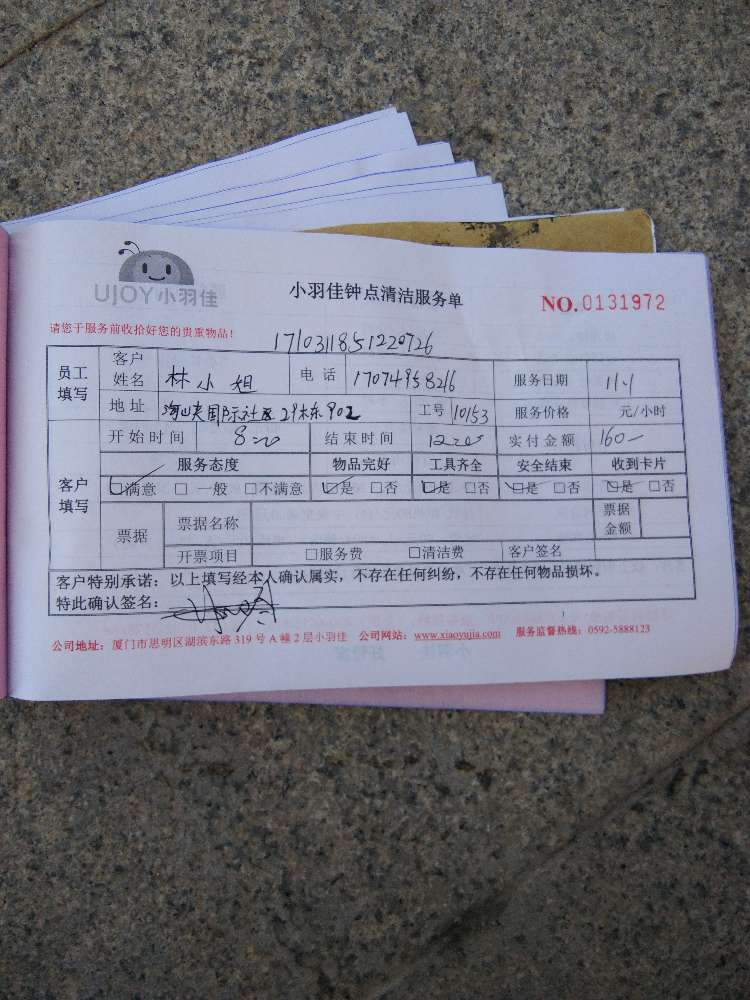 UJOY小羽佳
小羽佳钟点清洁服务单
NO.0131972
请您于服务前收拾好您的贵重物品!
1710311851220726
员工填写 客户姓名 林小姐 电话 17074958216 服务日期 11.1
地址 国际社区29栋东902 工号 10153 服务价格 元/小时
开始时间 8:00 结束时间 12:00 实付金额 160-
客户填写 服务态度 物品完好 工具齐全 安全结束 收到卡片
☑满意 □一般 □不满意 ☑是 □否 ☑是 □否 ☑是 □否 ☑是 □否
票据 票据名称 票据金额
开票项目 □服务费 □清洁费 客户签名
客户特别承诺：以上填写经本人确认属实，不存在任何纠纷，不存在任何物品损坏。
特此确认签名：
公司地址：厦门市思明区湖滨东路319号A幢2层小羽佳 公司网站：www.xiaoyujia.com 服务监督热线：0592-5888123